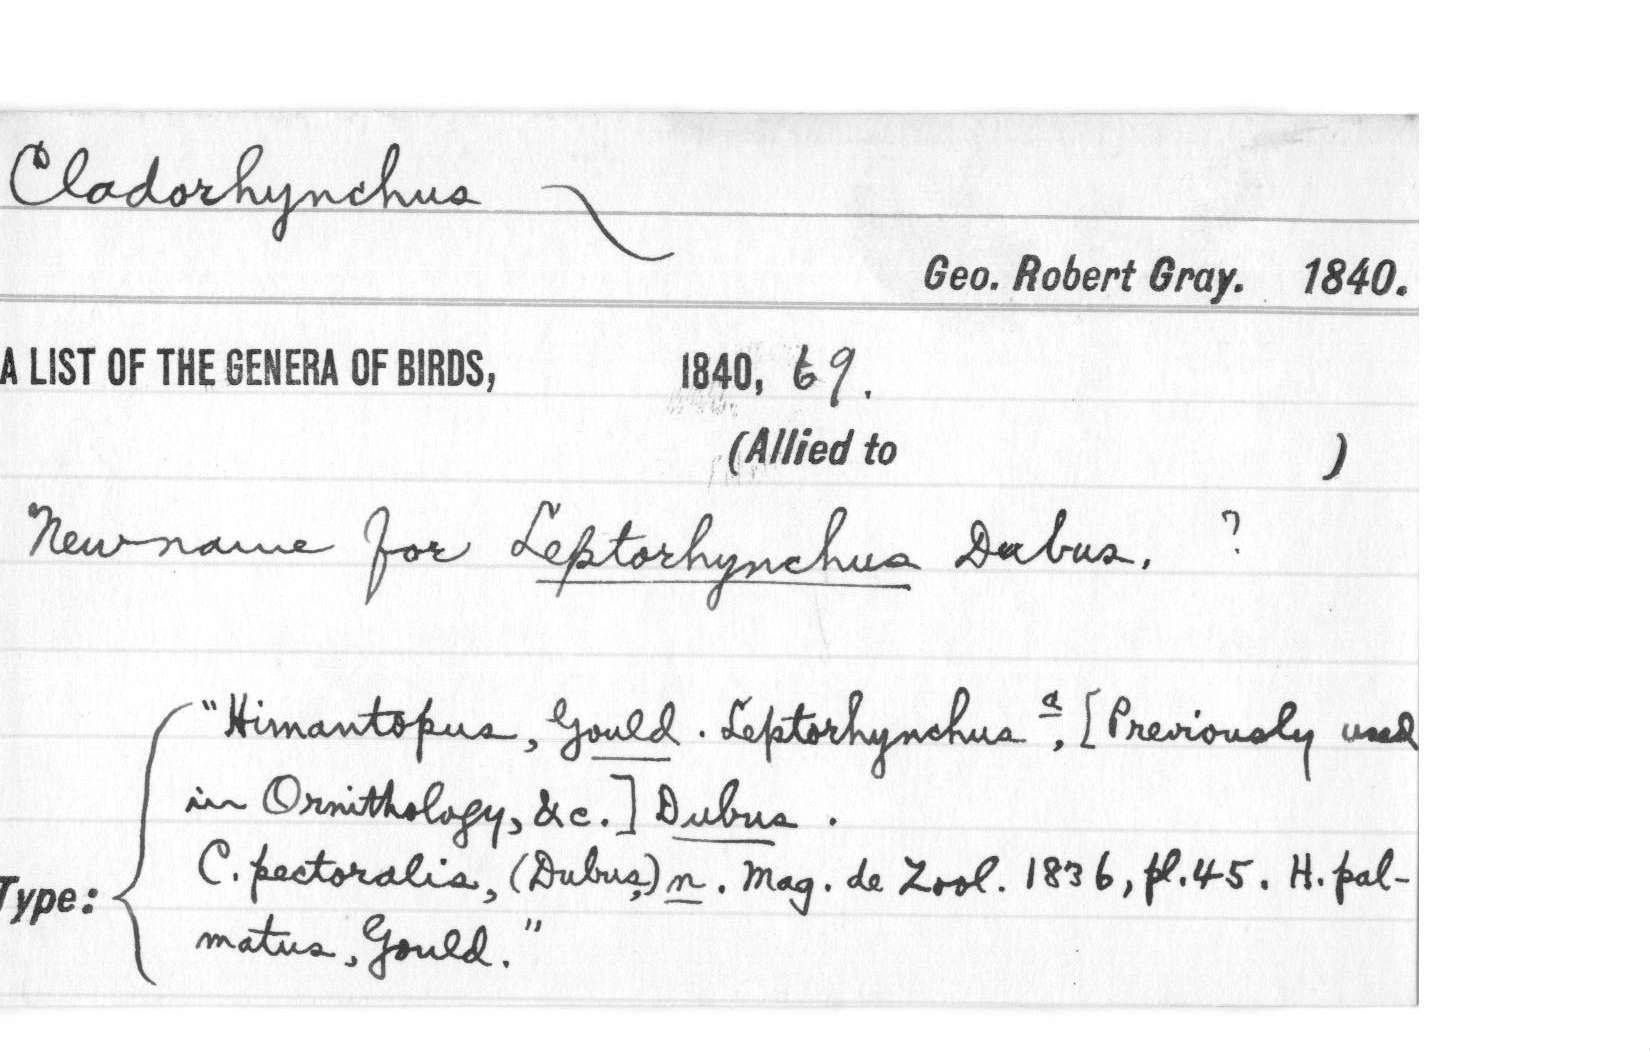 Cladorhynchus
Geo. Robert Gray. 1840.
A LIST OF THE GENERA OF BIRDS, 1840, 69.
(Allied to )
New name for Leptorhynchus Dubus. ?
"Himantopus, Gould. Leptorhynchus a, [Previously used
in Ornithology, &c.] Dubus.
C. pectoralis, (Dubus,) n. Mag. de Zool. 1836, pl. 45. H. pal-
Type:
matus, Gould."